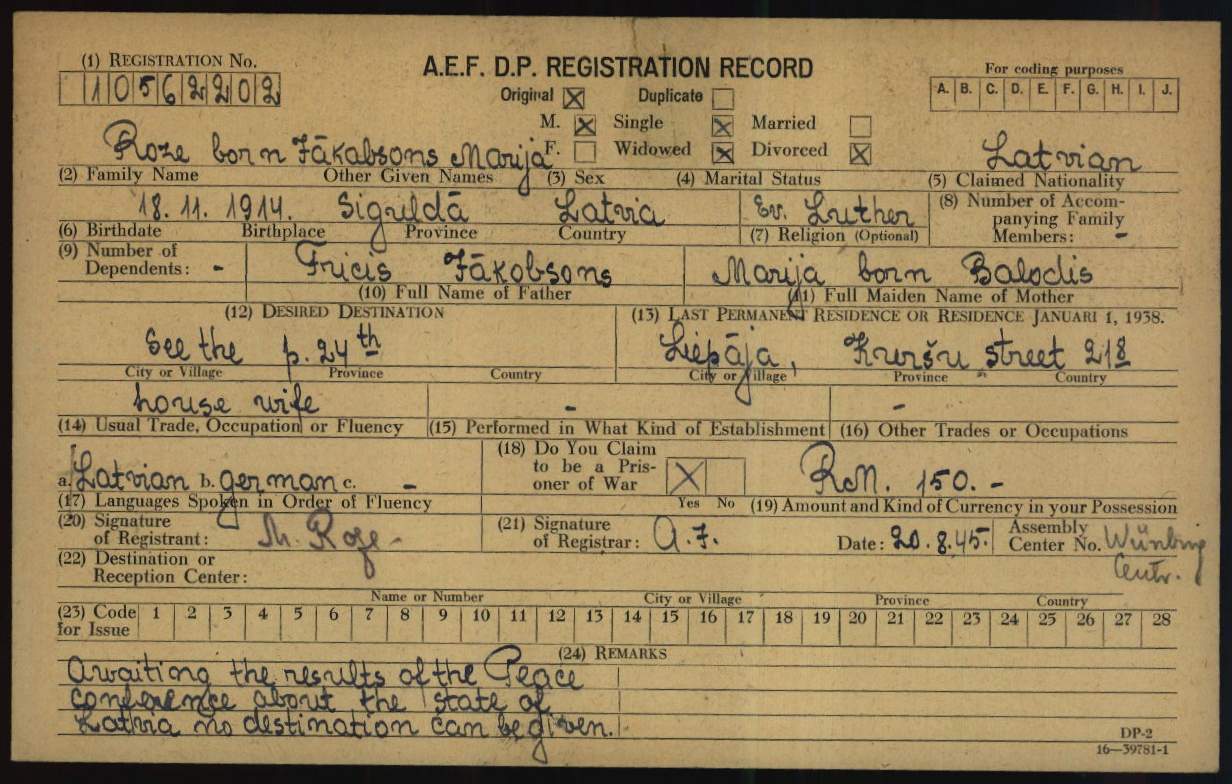 (1) REGISTRATION No.
10562202
A.E.F. D.P. REGISTRATION RECORD
For coding purposes
A. B. C. D. E. F. G. H. I. J.
Original ☒ Duplicate ☐
M. ☒ Single ☒ Married ☐
F. ☐ Widowed ☒ Divorced ☒
Roze born Jākobsons Marija
Latvian
(2) Family Name Other Given Names (3) Sex (4) Marital Status (5) Claimed Nationality
18. 11. 1914. Siguldā Latvia Ev. Luther
(6) Birthdate Birthplace Province Country (7) Religion (Optional)
(8) Number of Accom-
panying Family
Members: -
(9) Number of
Dependents: -
Fricis Jākobsons Marija born Balodis
(10) Full Name of Father (11) Full Maiden Name of Mother
(12) DESIRED DESTINATION (13) LAST PERMANENT RESIDENCE OR RESIDENCE JANUARI 1, 1938.
See the p. 24th Liepāja, Kuršu street 218
City or Village Province Country City or Village Province Country
house wife - -
(14) Usual Trade, Occupation or Fluency (15) Performed in What Kind of Establishment (16) Other Trades or Occupations
a. Latvian b. german c. -
(17) Languages Spoken in Order of Fluency
(18) Do You Claim
to be a Pris-
oner of War
☒ ☐
Yes No
RM. 150. -
(19) Amount and Kind of Currency in your Possession
(20) Signature
of Registrant: M. Roze
(21) Signature
of Registrar: A. J.
Date: 20. 8. 45.
Assembly
Center No.
Centr.
(22) Destination or
Reception Center:
Name or Number City or Village Province Country
(23) Code
for Issue
1 2 3 4 5 6 7 8 9 10 11 12 13 14 15 16 17 18 19 20 21 22 23 24 25 26 27 28
(24) REMARKS
Awaiting the results of the Peace
conference about the state of
Latvia no destination can be given.
DP-2
16—39781-1